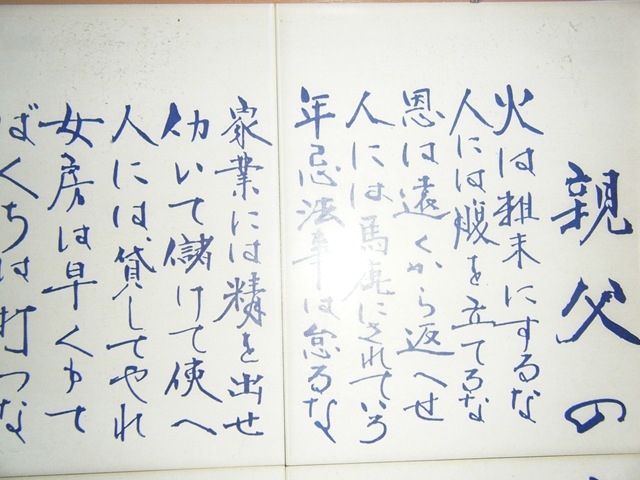 親父の
火は粗末にするな
人には腹を立てるな
恩は遠くから返へせ
人には馬鹿にされていろ
年忌法事は怠るな
家業には精を出せ
仂いて儲けて使へ
人には貸してやれ
女房は早くもて
ばくちは打つな